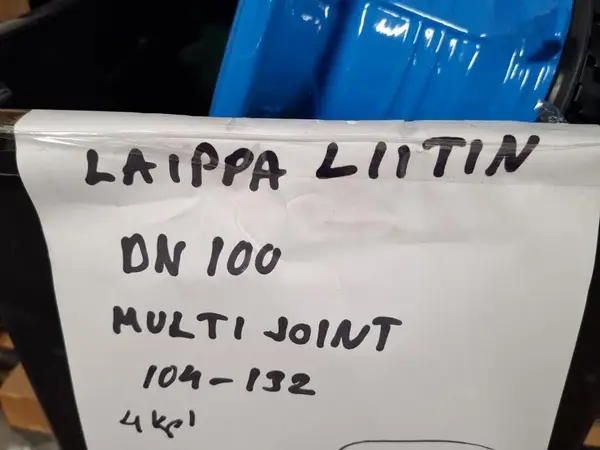 LAIPPA LIITIN
DN 100
MULTI JOINT
104-132
4 kpl